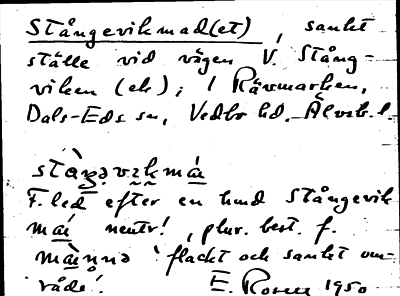 Stångevikmad(et), sankt
ställe vid vägen V. Stång-
viken (ek); i Rävmarken,
Dals-Eds sn, Vedbo hd, Älvsb. l.
F. led efter en hmd Stångevik
neutr!, plur. best. f.
'flackt och sankt om-
råde'. E. Rosen 1950